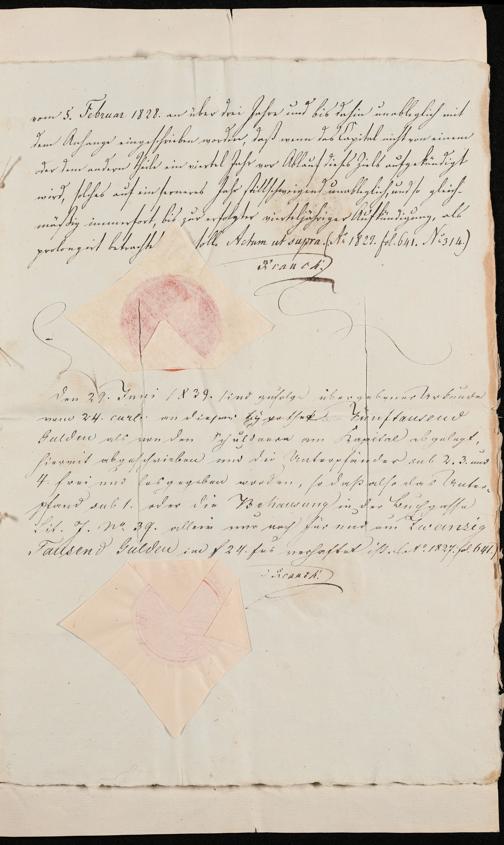 vom 5. Februar 1828. an über drei Jahre und bis dahin unableglich mit
dem Anhange eingeschrieben worden, daß wenn das Capital nicht von einem
oder dem andern Theile ein viertel Jahr vor Ablauf dieses Ziels aufgekündigt
wird, solches auf ein ferneres Jahr stillschweigend unableglich, und so gleich-
mäßig immerfort, bis zur erfolgten vierteljähriger Aufkündigung, als
prolongirt betrachtet solle. Actum ut supra. (No. 1827. fol. 641. No. 314.)
Den 29. Juni 1839. sind zufolge übergebener Urkunde
vom 24. curt. an dieser Hypothek Fünftausend
Gulden als von den Schuldnern am Kapital abgelegt,
hiermit abgeschrieben und die Unterpfänder sub 2. 3. und
4. frei und losgegeben worden, so daß also das Unter-
pfand sub 1. oder die Behausung in der Buchgasse
Lit. J. No. 39. allein nur noch für und um Zwanzig
Tausend Gulden im f 24. fus verhaftet ist. (No. 1827. fol. 641.)